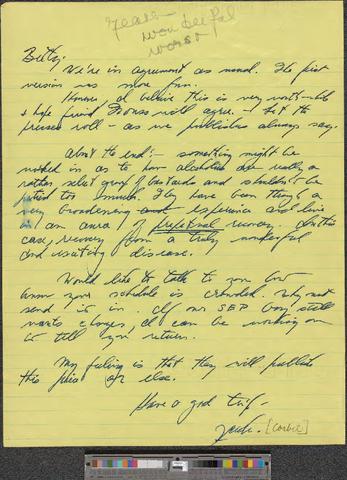 wonderful
worst
Betty:
We're in agreement as usual. The first
version was more fun.
However I believe this is very worth-
& hope friend will agree. & let the
presses roll - as we publishers always say.
About the end: - something might be
worked in as to how alcoholics are really a
rather select group of bastards and shouldn't be
pitied too much. They have been through a
very broadening experience and live
in an aura of perpetual recovery. In this
case, recovery from a truly wonderful
and disease.
Would like to talk to you but
know your schedule is crowded. Why not
send it in. If our SEP boy still
wants changes, I can be working on
it till you return.
My feeling is that they will publish
this piece or else.
Have a good trip -
Jack. [Corbie]